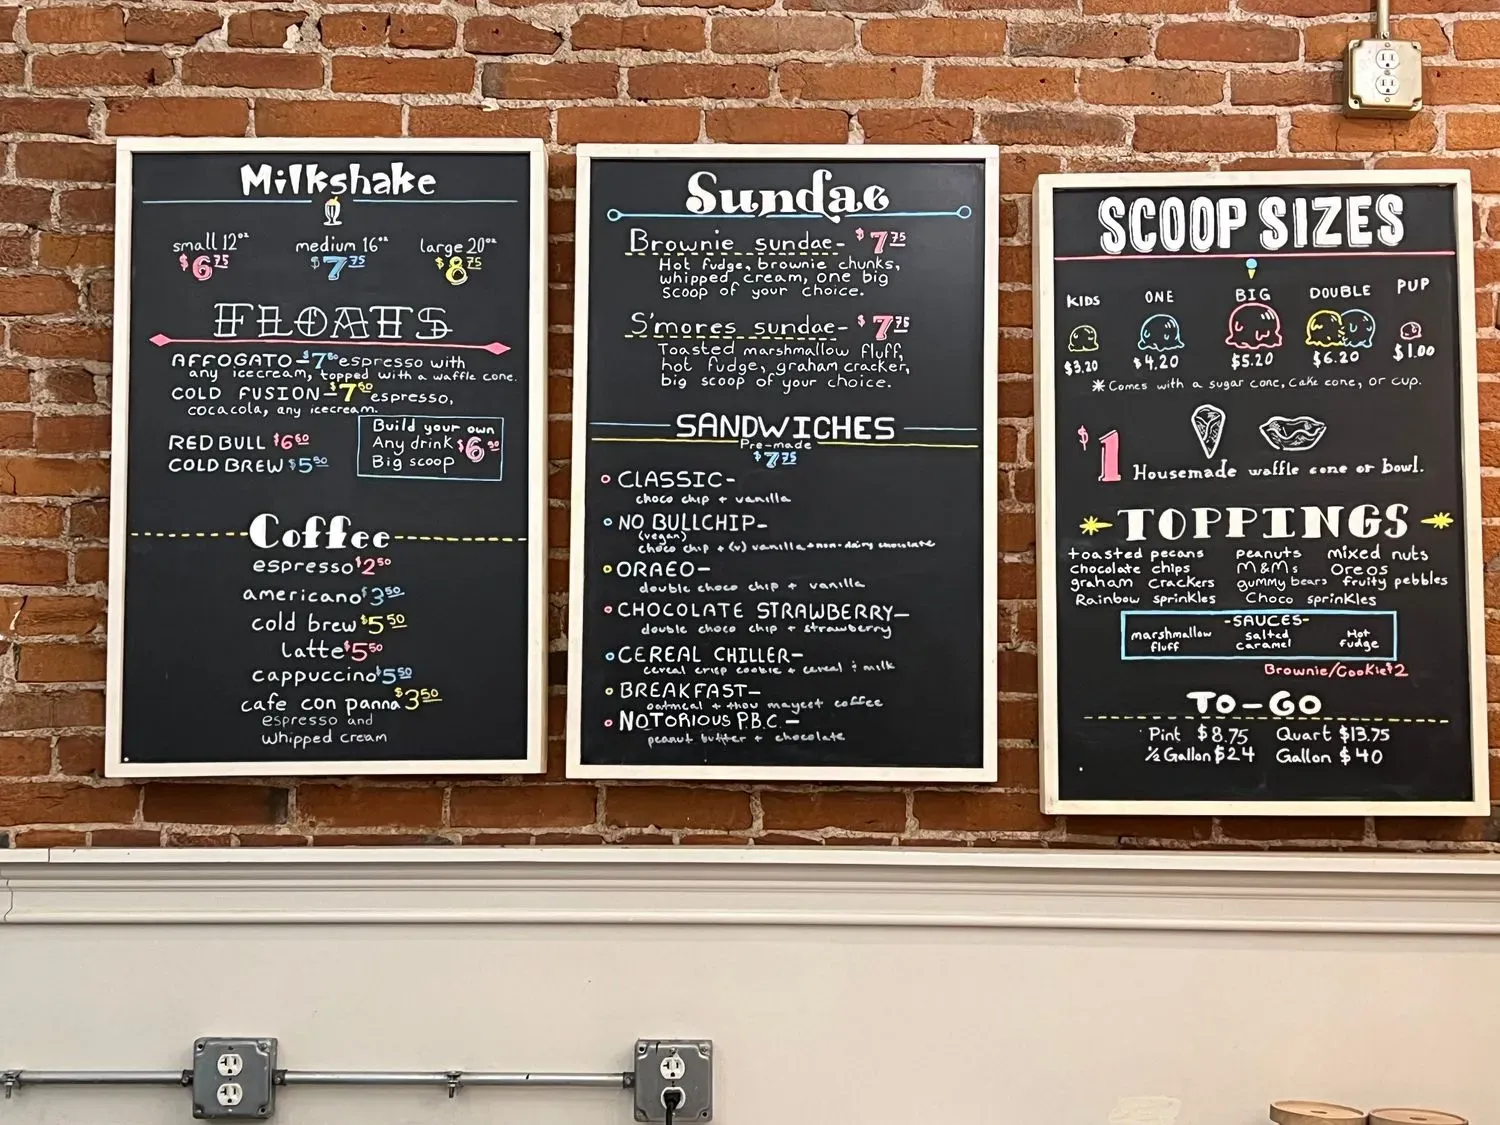 Milkshake
small 12oz medium 16oz large 20oz
$6.75 $7.75 $8.75
FLOATS
AFFOGATO-$7.60 espresso with
any icecream, topped with a waffle cone.
COLD FUSION-$7.60 espresso,
cocacola, any icecream.
RED BULL $6.60
COLD BREW $5.90
Build your own
Any drink $6.90
Big scoop
Coffee
espresso $2.50
americano $3.50
cold brew $5.50
latte $5.50
cappuccino $5.50
cafe con panna $3.50
espresso and
whipped cream
Sundae
Brownie sundae- $7.75
Hot fudge, brownie chunks,
whipped cream, one big
scoop of your choice.
S'mores sundae- $7.75
Toasted marshmallow fluff,
hot fudge, graham cracker,
big scoop of your choice.
SANDWICHES
Pre-made
$7.75
CLASSIC-
choco chip + vanilla
NO BULLCHIP-
(vegan)
choco chip + (v) vanilla + non-dairy chocolate
ORAEO-
double choco chip + vanilla
CHOCOLATE STRAWBERRY-
double choco chip + strawberry
CEREAL CHILLER-
cereal crisp cookie + cereal & milk
BREAKFAST-
oatmeal + thou mayest coffee
NOTORIOUS P.B.C.-
peanut butter + chocolate
SCOOP SIZES
KIDS ONE BIG DOUBLE PUP
$3.20 $4.20 $5.20 $6.20 $1.00
*Comes with a sugar cone, cake cone, or cup.
$1 Housemade waffle cone or bowl.
TOPPINGS
toasted pecans peanuts mixed nuts
chocolate chips M&Ms Oreos
graham crackers gummy bears fruity pebbles
Rainbow sprinkles Choco sprinkles
-SAUCES-
marshmallow fluff salted caramel Hot fudge
Brownie/Cookie $2
TO-GO
Pint $8.75 Quart $13.75
½ Gallon $24 Gallon $40